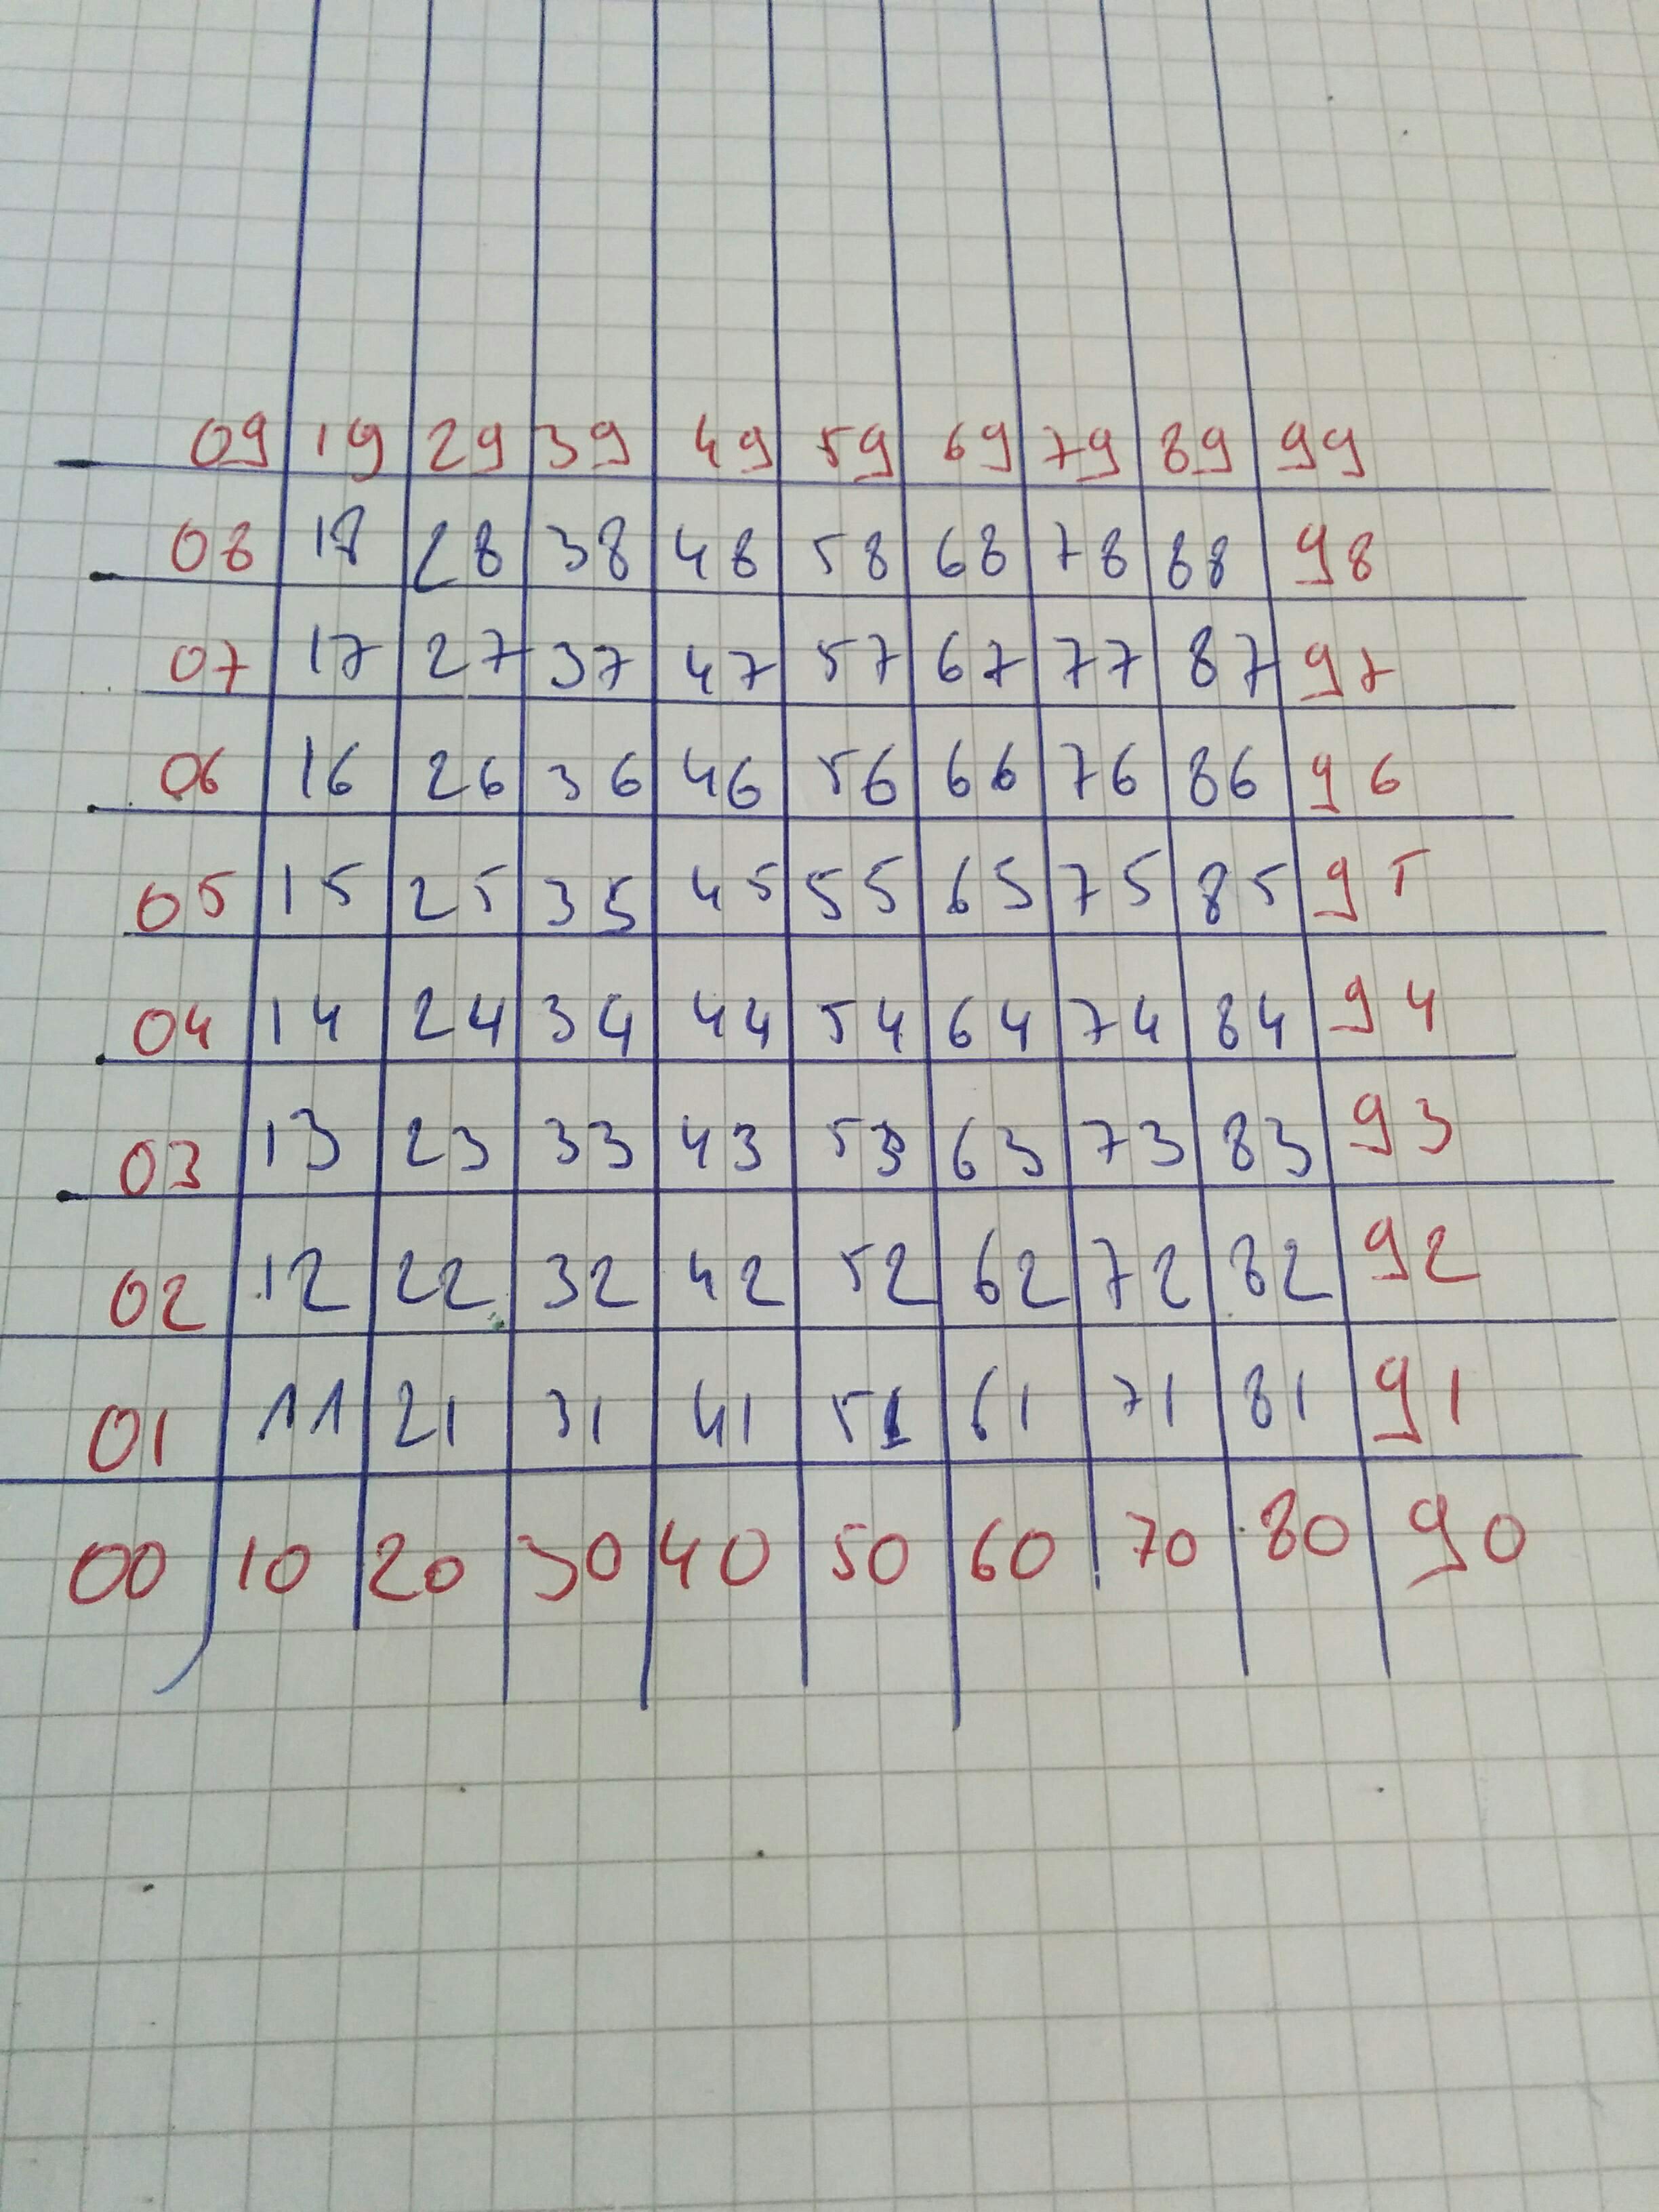 09 19 29 39 49 59 69 79 89 99
08 18 28 38 48 58 68 78 88 98
07 17 27 37 47 57 67 77 87 97
06 16 26 36 46 56 66 76 86 96
05 15 25 35 45 55 65 75 85 95
04 14 24 34 44 54 64 74 84 94
03 13 23 33 43 53 63 73 83 93
02 12 22 32 42 52 62 72 82 92
01 11 21 31 41 51 61 71 81 91
00 10 20 30 40 50 60 70 80 90